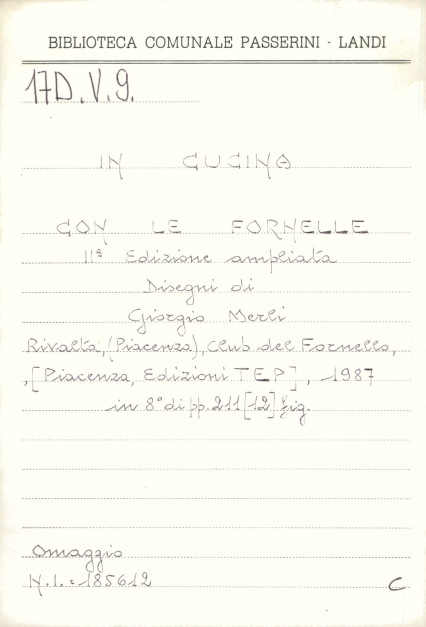 BIBLIOTECA COMUNALE PASSERINI - LANDI
17D.V.9.
IN CUCINA
CON LE FORNELLE
IIª Edizione ampliata
Disegni di
Giorgio Merli
Rivalta, (Piacenza), Club del Fornello,
,[Piacenza, Edizioni TEP], 1987
in 8° di pp. 211 [12] fig.
Omaggio
N.I. = 185612
C